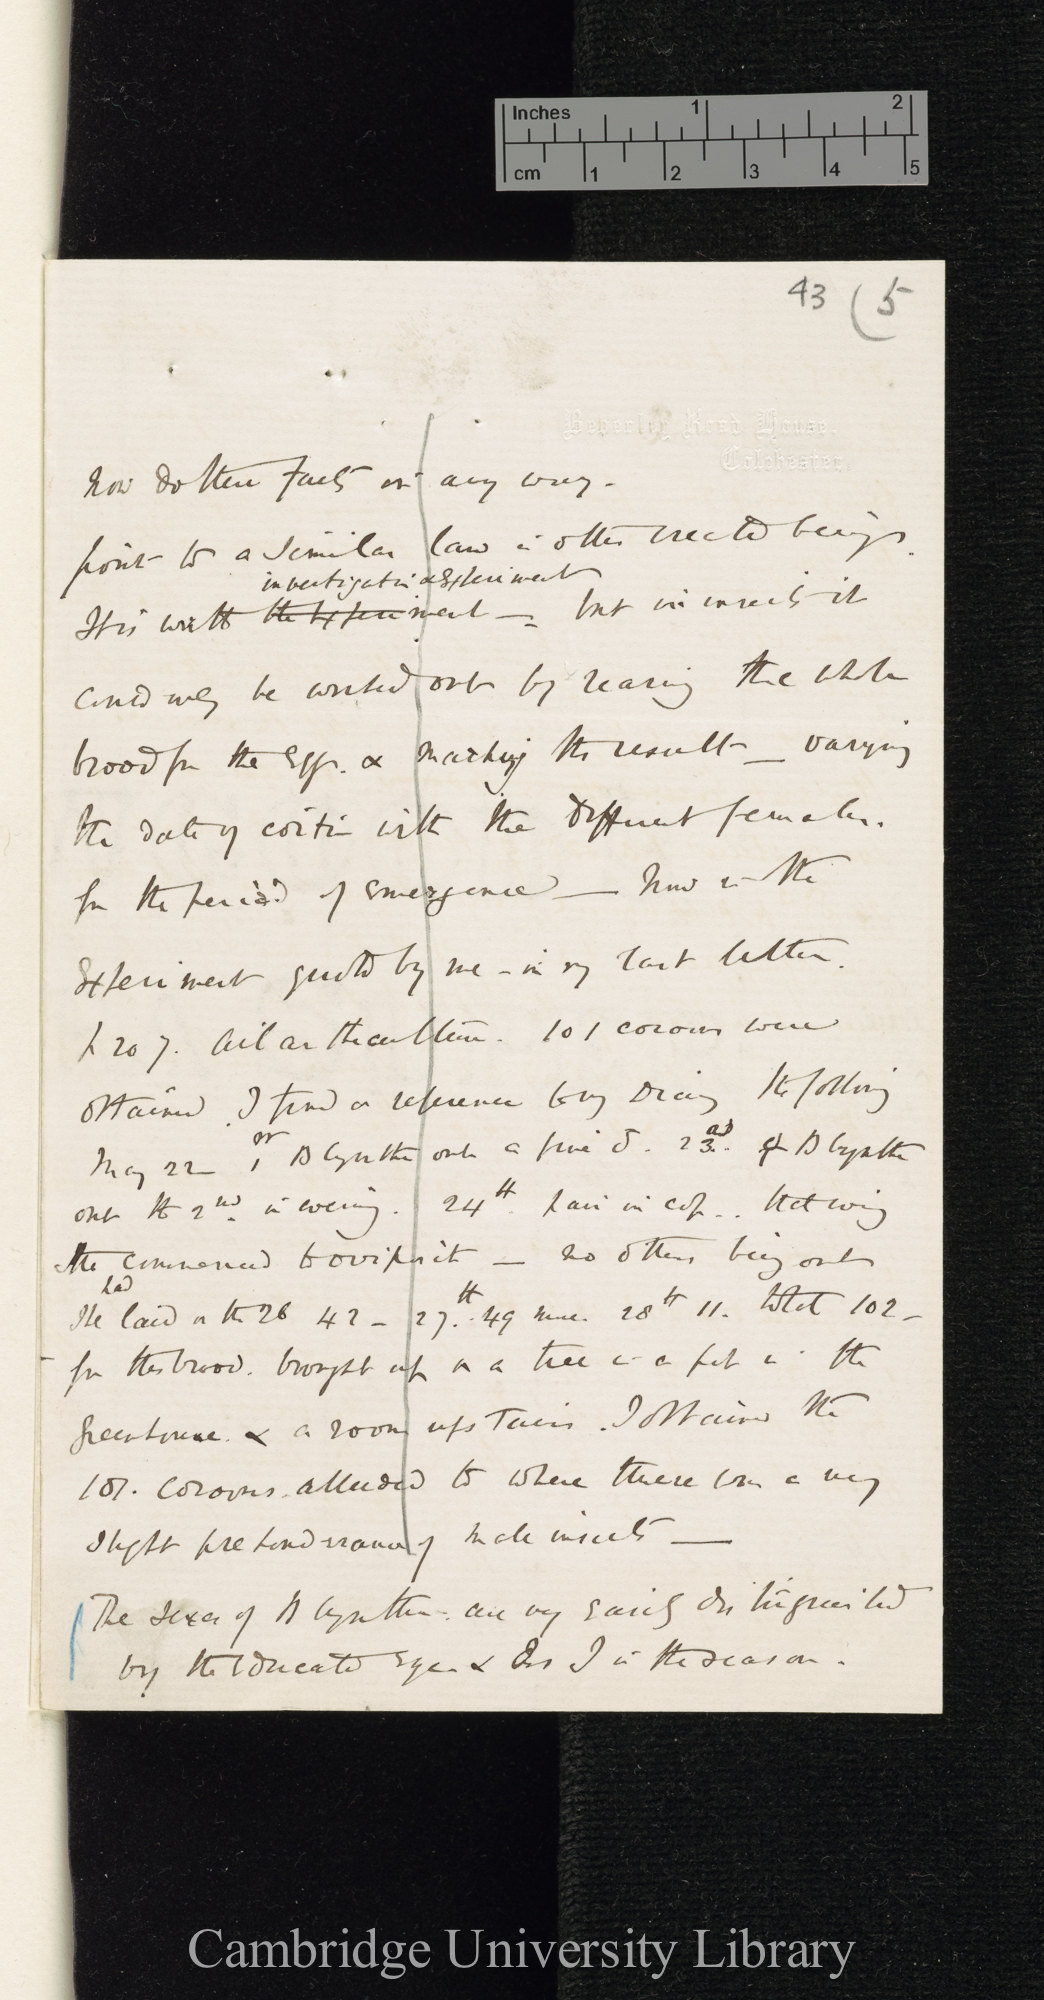 Inches 1 2
cm 1 2 3 4 5
43 (5
Beverley Road House.
Colchester.
Now do these Facts in any way -
point to a similar law in other created beings.
investigation & Experiment
It is worth the Experiment — but in insects it
could only be worked out by rearing the whole
brood fm the Eggs. & marking the result — varying
the date of coition with the different females.
fm the period of Emergence — Now in the
Experiment quoted by me - in my last letter.
p 207. Ailanthiculture. 101 cocoons were
obtained I find on reference to my Diary the following
May 22 — 1st B Cynthia out a fine ♂. 23rd. ♀ B Cynthia
out the 2nd. in evening. 24th pair in cop.. that evng
she commenced to oviposit — no others being out
had
She laid on the 26 42 - 27th. 49 more. 28th 11. total 102 -
fm this brood. brought up on a tree in a pot in the
Greenhouse & a room upstairs. I obtained the
101. cocoons alluded to where there was a very
slight preponderance of male insects —
The sexes of B Cynthia are very easily distinguished
by the Educated Eye & in the season.